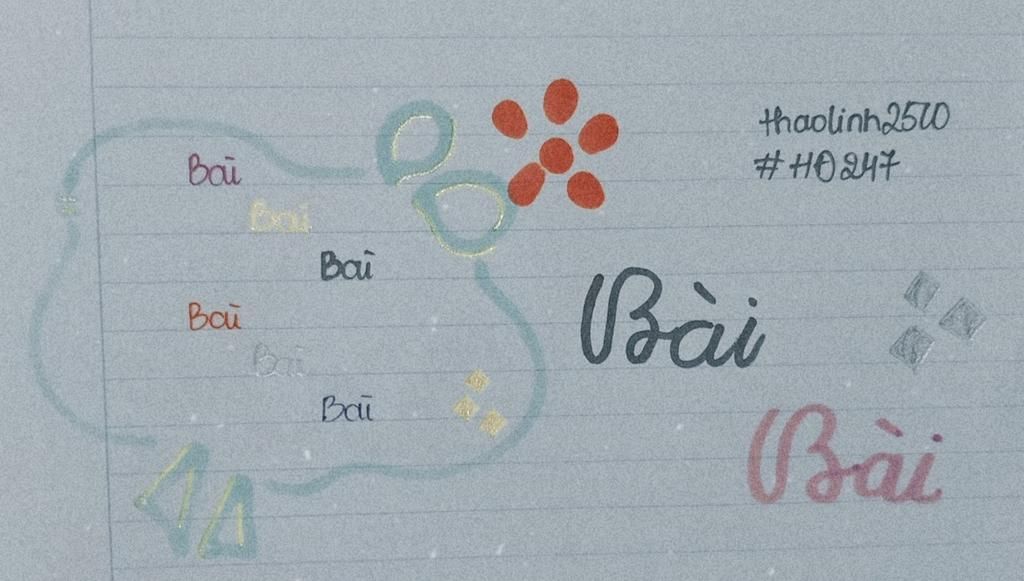 thaolinh2570
#HD247
Bài
Bài
Bài
Bài
Bài
Bài
Bài
Bài